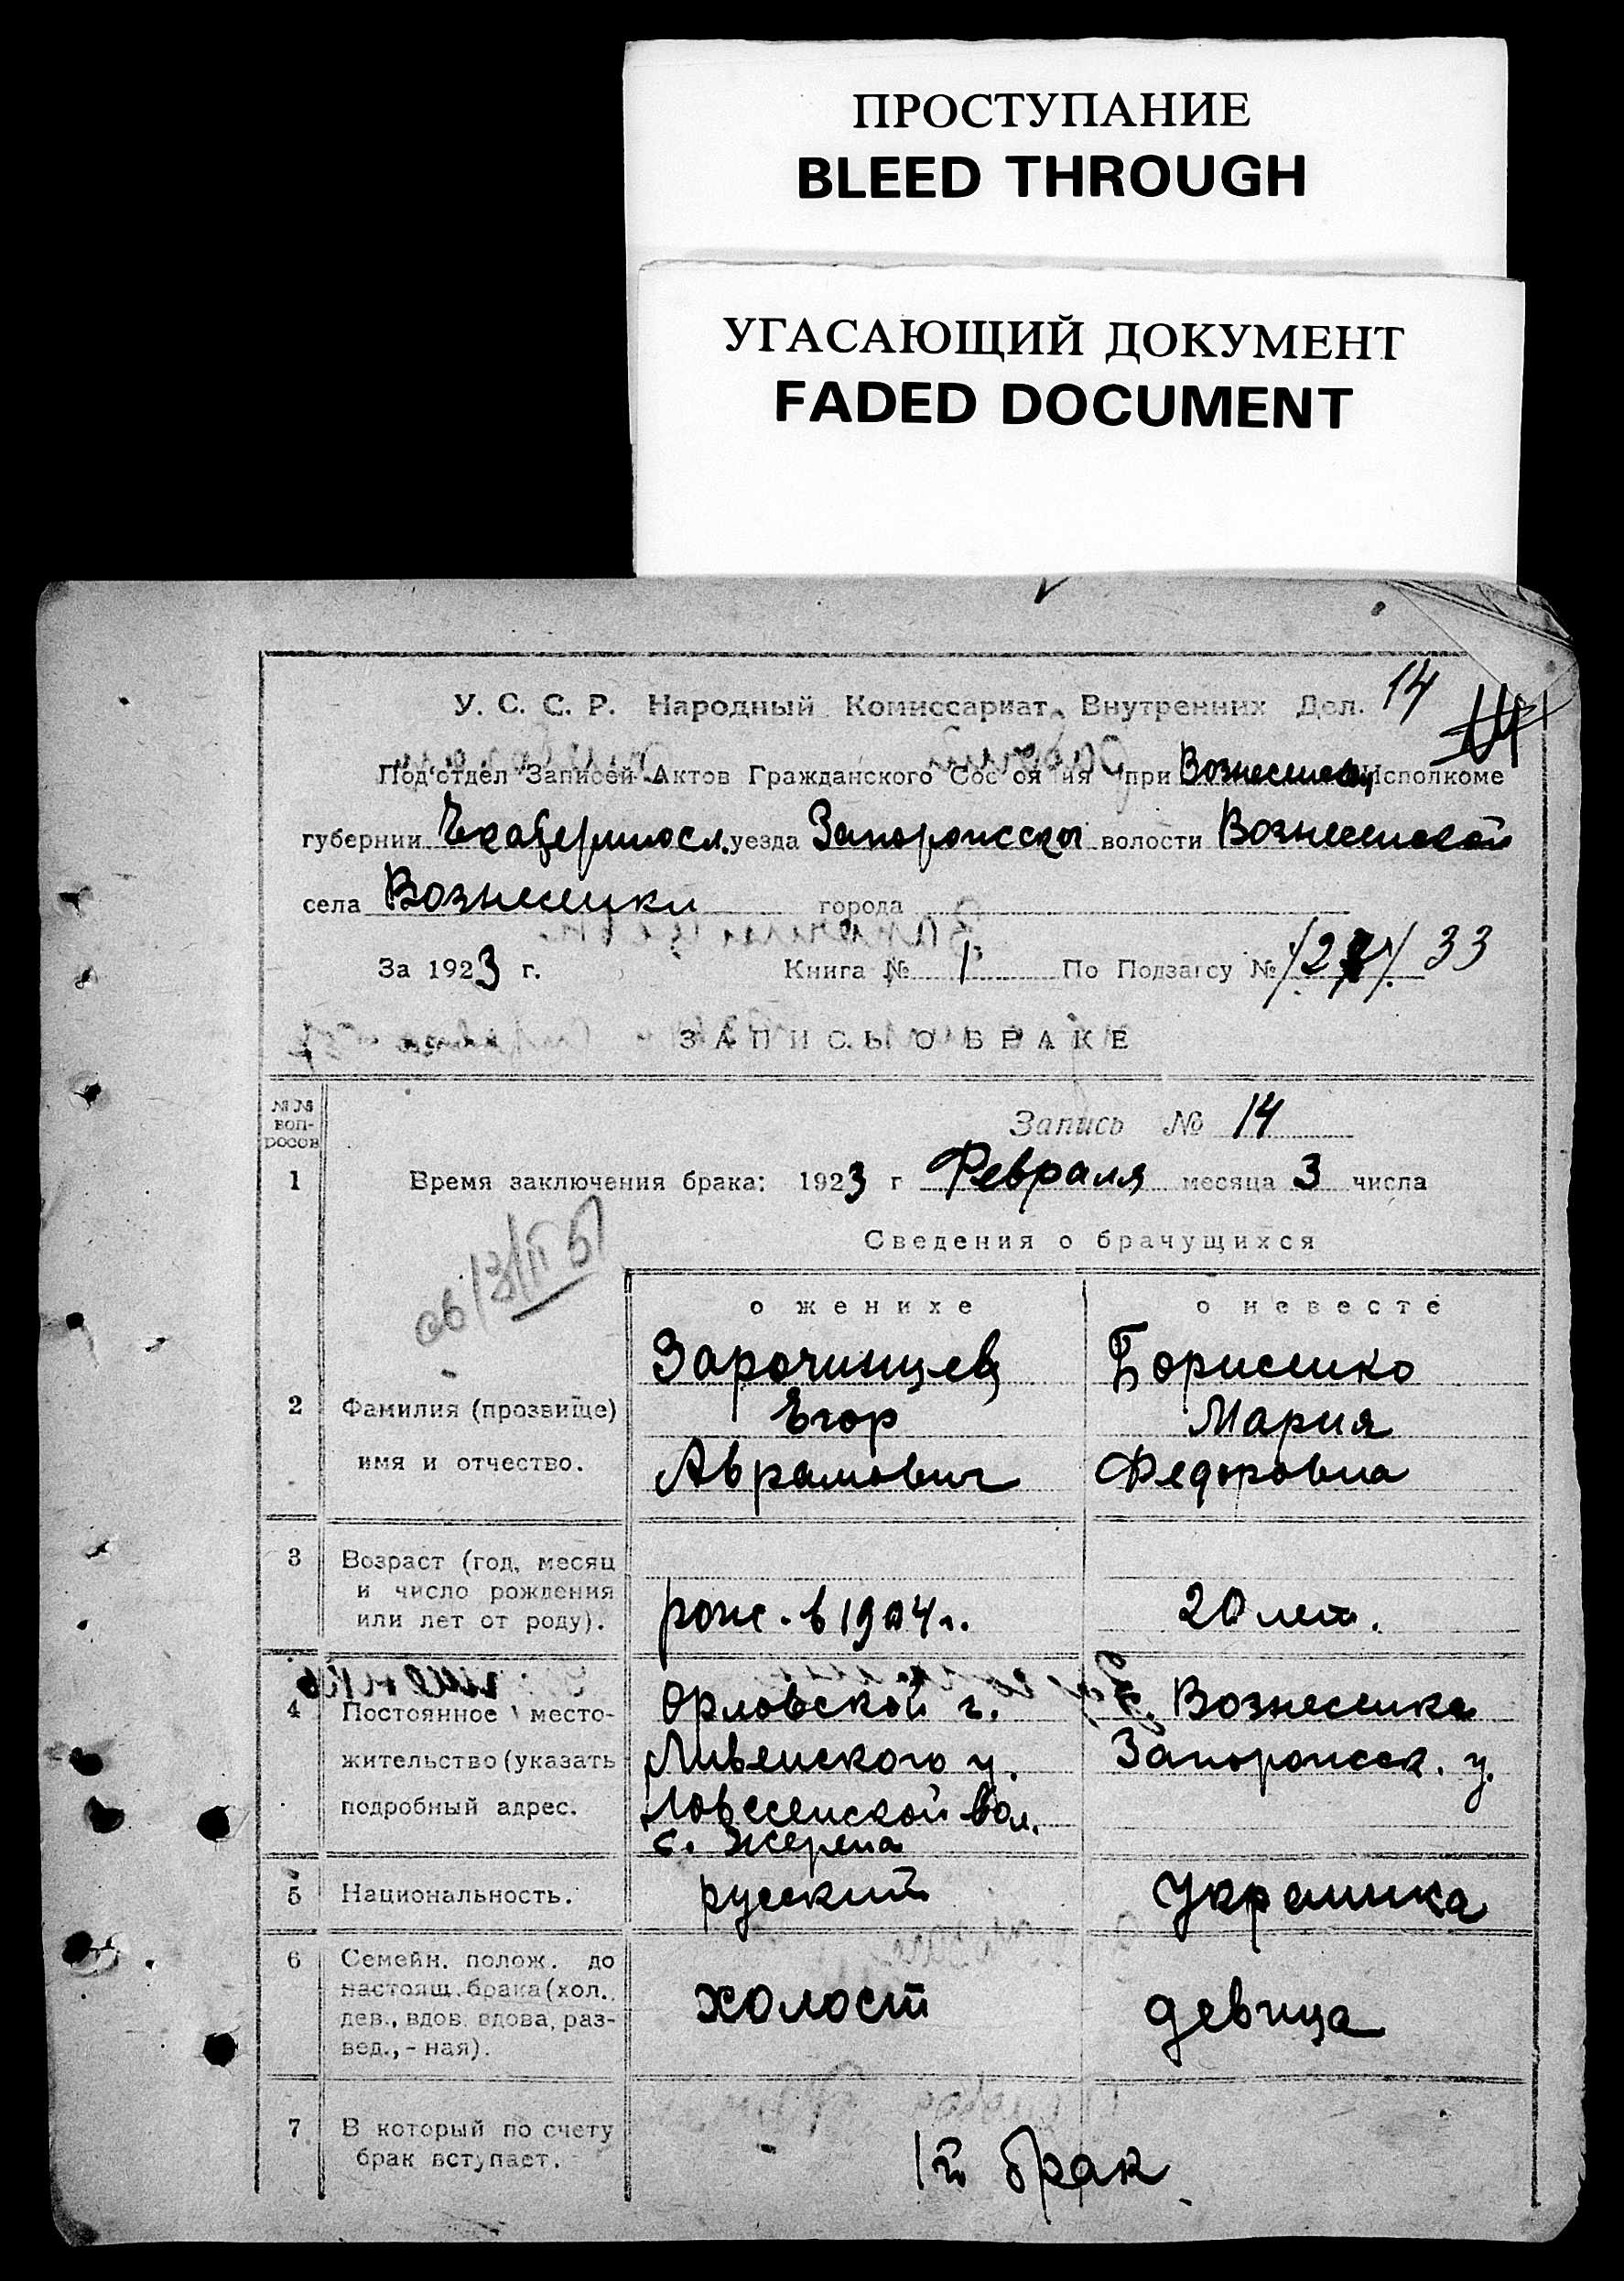 ПРОСТУПАНИЕ
BLEED THROUGH
УГАСАЮЩИЙ ДОКУМЕНТ
FADED DOCUMENT
14
У. С. С. Р. Народный Комиссариат Внутренних Дел.
Под‘отдел Записей Актов Гражданского Сос оя ия при Вознесенском Исполкоме
губернии Екатериносл. уезда Запорожског волости Вознесенской
села Вознесенки города
За 1923 г. Книга № 1 По Подзагсу № 33
ЗАПИСЬ О БРАКЕ
№№ воп-росов
Запись № 14
1 Время заключения брака: 1923 г Февраля месяца 3 числа
Сведения о брачущихся
о женихе о невесте
Зарочинцев Борисенко
2 Фамилия (прозвище) Егор Мария
имя и отчество. Аврамович Федоровна
3 Возраст (год, месяц
и число рождения
или лет от роду). рож. в 1904 г. 20 лет.
4 Постоянное место- Орловской г. с. Вознесенка
жительство (указать Ливенского у. Запорожск. у.
подробный адрес. вол.
с. Жерена
5 Национальность. русский Украинка
6 Семейн. полож. до
настоящ. брака (хол.,
дев., вдов. вдова, раз- холост девица
вед., - ная).
7 В который по счету
брак вступает. 1й брак